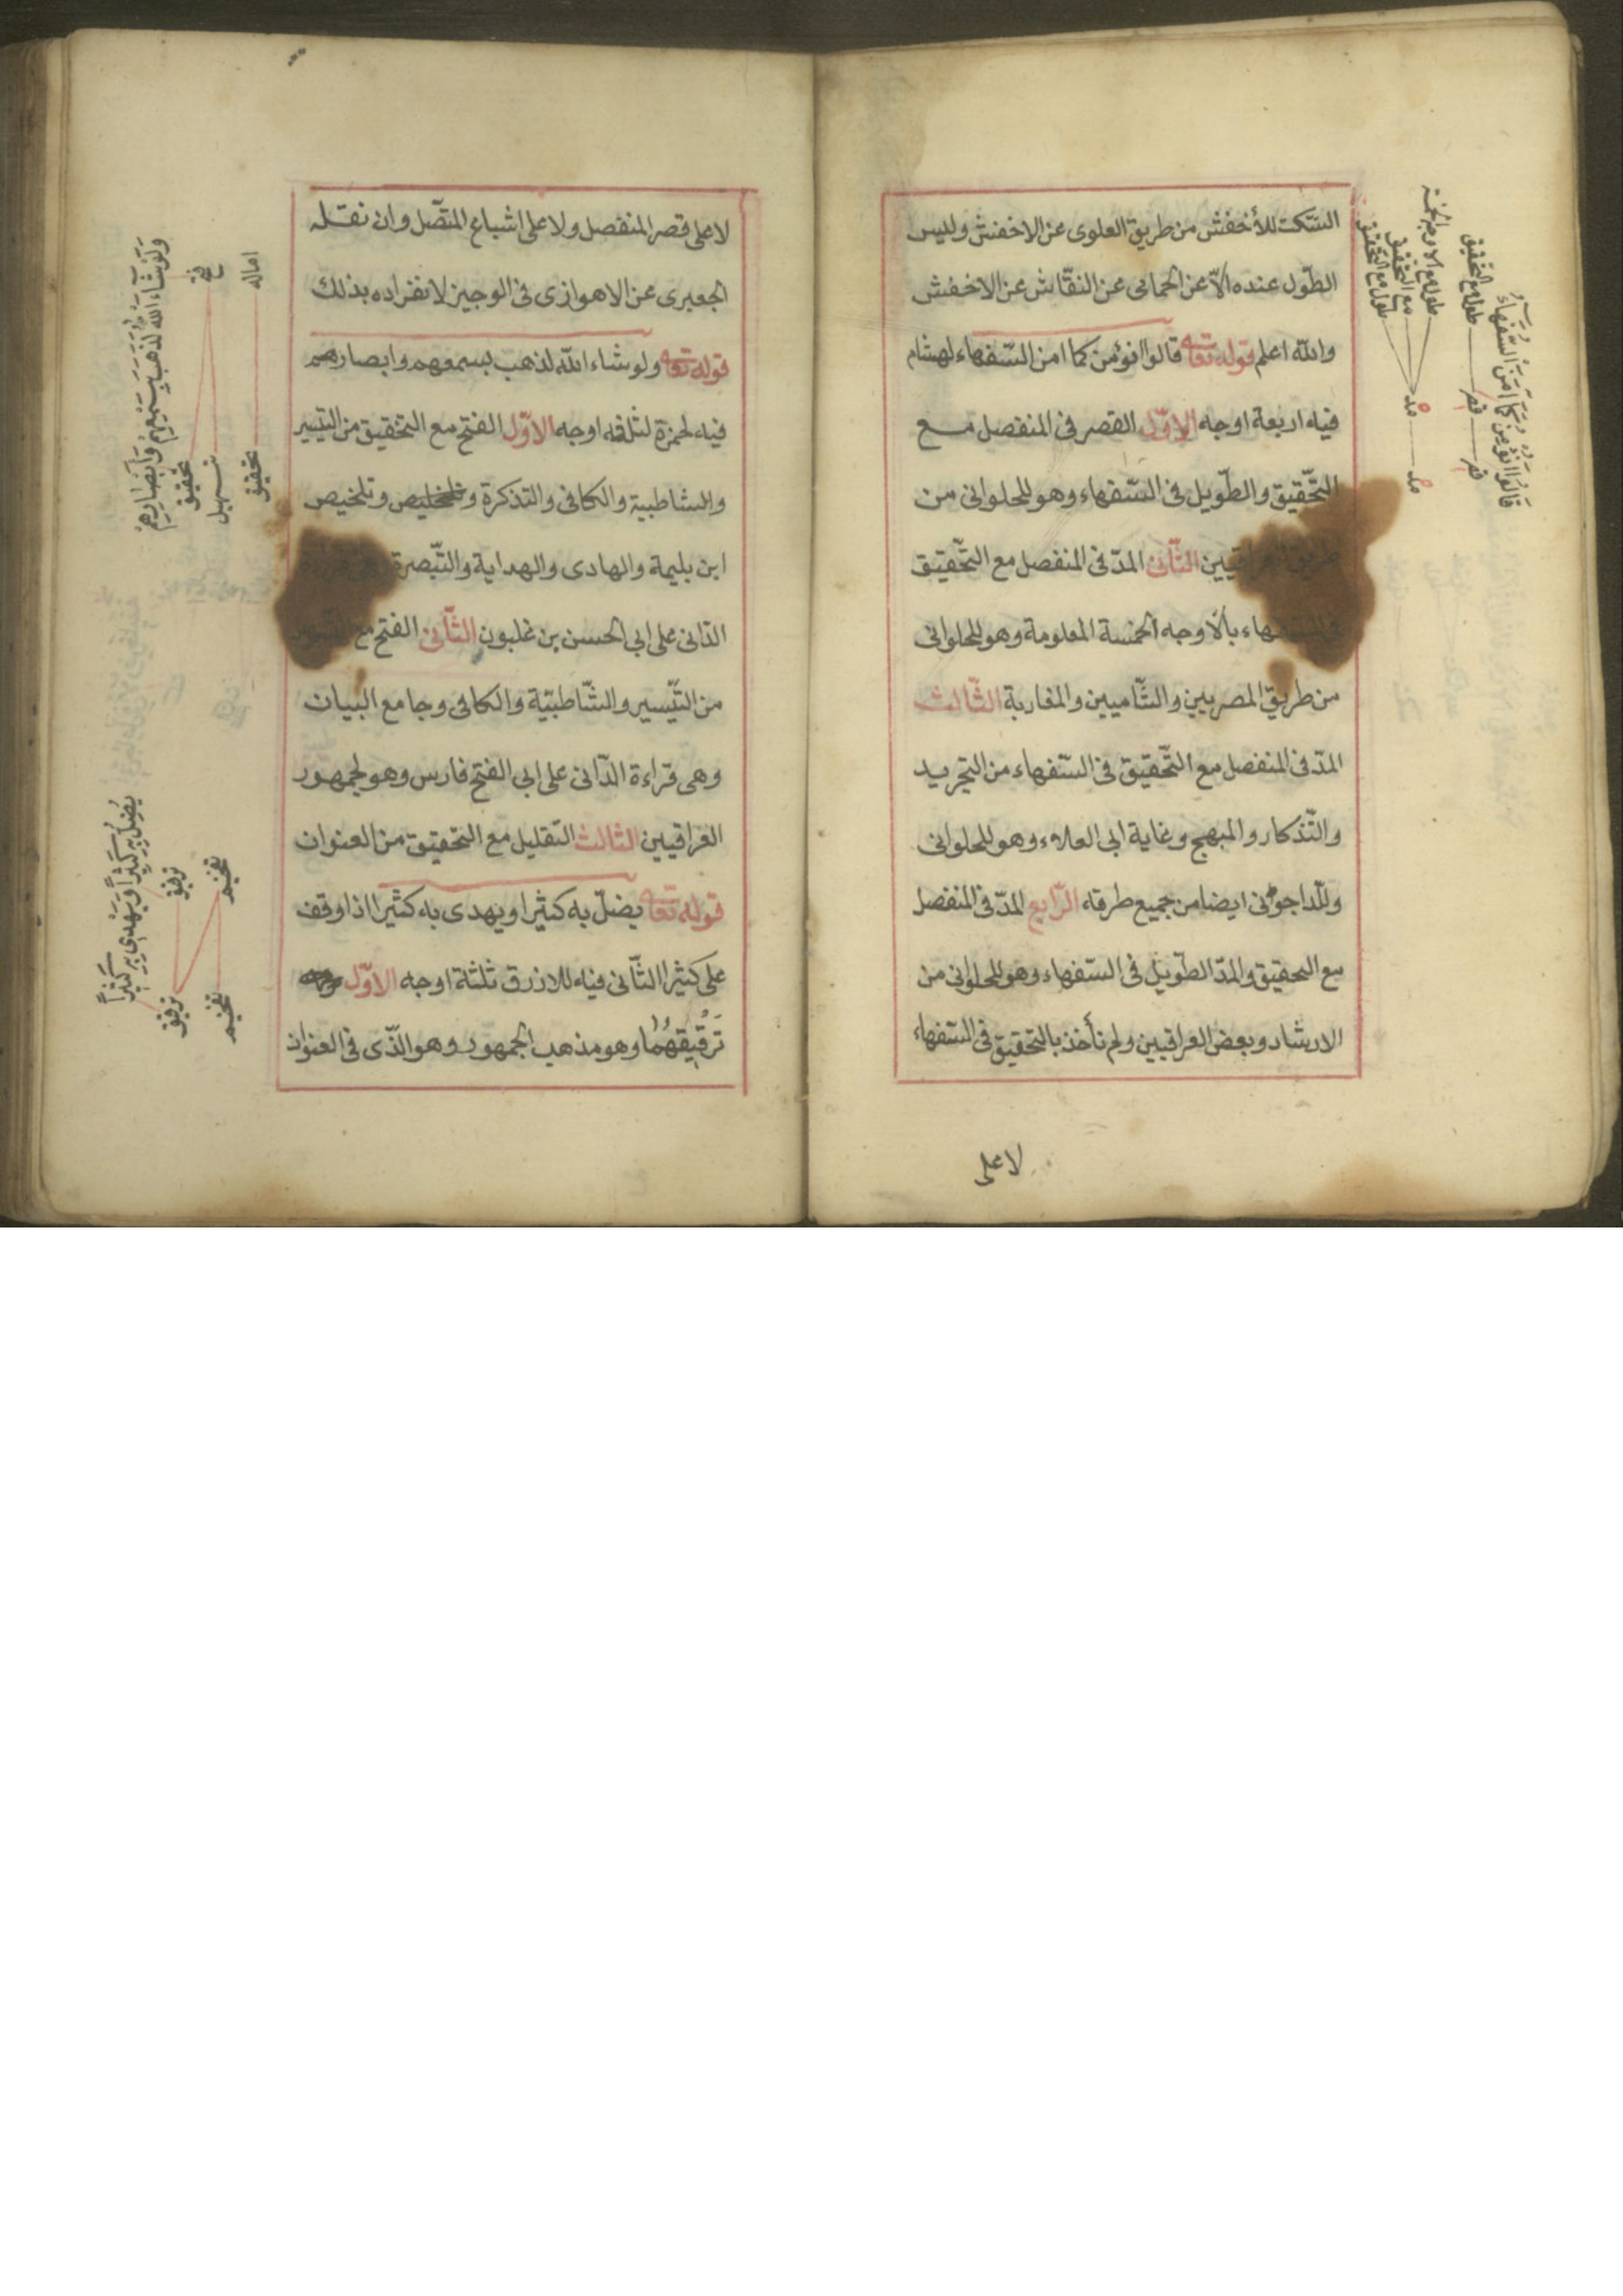 السّكت للأخفش من طريق العلوى عن الاخفش وليس
الطّول عنده الّا عن الحمامى عن النقّاش عن الاخفش
والله اعلم قوله تعا قالوا انؤمن كما امن السّفهاء لهشام
فيه اربعة اوجه الاوّل القصر فى المنفصل مع
التّحقيق والطّويل فى السّفهاء وهو للحلوانى من
طريق العراقيين الثّانى المدّ فى المنفصل مع التّحقيق
بالاوجه الخمسة المعلومة وهو للحلوانى
من طريق المصريين والشّاميين والمغاربة الثّالث
المدّ فى المنفصل مع التّحقيق فى السّفهاء من التجريد
والتّذكار والمبهج وغاية ابى العلاء وهو للحلوانى
وللّداجونى ايضا من جميع طرقه الرّابع المدّ فى المنفصل
مع التحقيق والمدّ الطّويل فى السّفهاء وهو للحلوانى من
الارشاد وبعض العراقيين ولم نأخذ بالتحقيق فى السّفهاء
لا على
قَالُوا انُؤْمِنُ كَمَا اٰمَنَ السُّفَهَاءُ
طول مع التحقيق
قصر
قصر
طول مع الاوجه الخمسة
مع التحقيق
طول مع التحقيق
مد
مد
لا على قصر المنفصل ولا على اشباع المتّصل وان نقله
الجعبرى عن الاهوازى فى الوجيز لانفراده بذلك
قوله تعا ولو شاء الله لذهب بسمعهم وابصارهم
فيه لحمزة ثلثة اوجه الاوّل الفتح مع التحقيق من التيسير
والشاطبية والكافى والتذكرة وتلخيص وتلخيص
ابن بليمة والهادى والهداية والتّبصرة
الدّانى على ابى الحسن بن غلبون الثّانى الفتح مع
من التّيسير والشّاطبيّة والكافى وجامع البيان
وهى قراءة الدّانى على ابى الفتح فارس وهو لجمهور
العراقيين الثالث التقليل مع التحقيق من العنوان
قوله تعا يضلّ به كثيرا ويهدى به كثيرا اذا وقف
على كثيرا الثّانى فيه للازرق ثلثة اوجه الاوّل
تَرقيقهُمَا وهو مذهب الجمهور وهو الّذى فى العنوان
وَلَوْ شَاءَ اللّٰه لَذَهَبَ بِسَمْعِهِمْ وَاَبْصَارِهِمْ
فتح
اماله
تحقيق
تسهيل
تحقيق
يُضِلُّ بِهِ كَثِيْرًا وَيَهْدِى بِهِ كَثِيْرًا
ترقيق
تفخيم
ترقيق
تفخيم